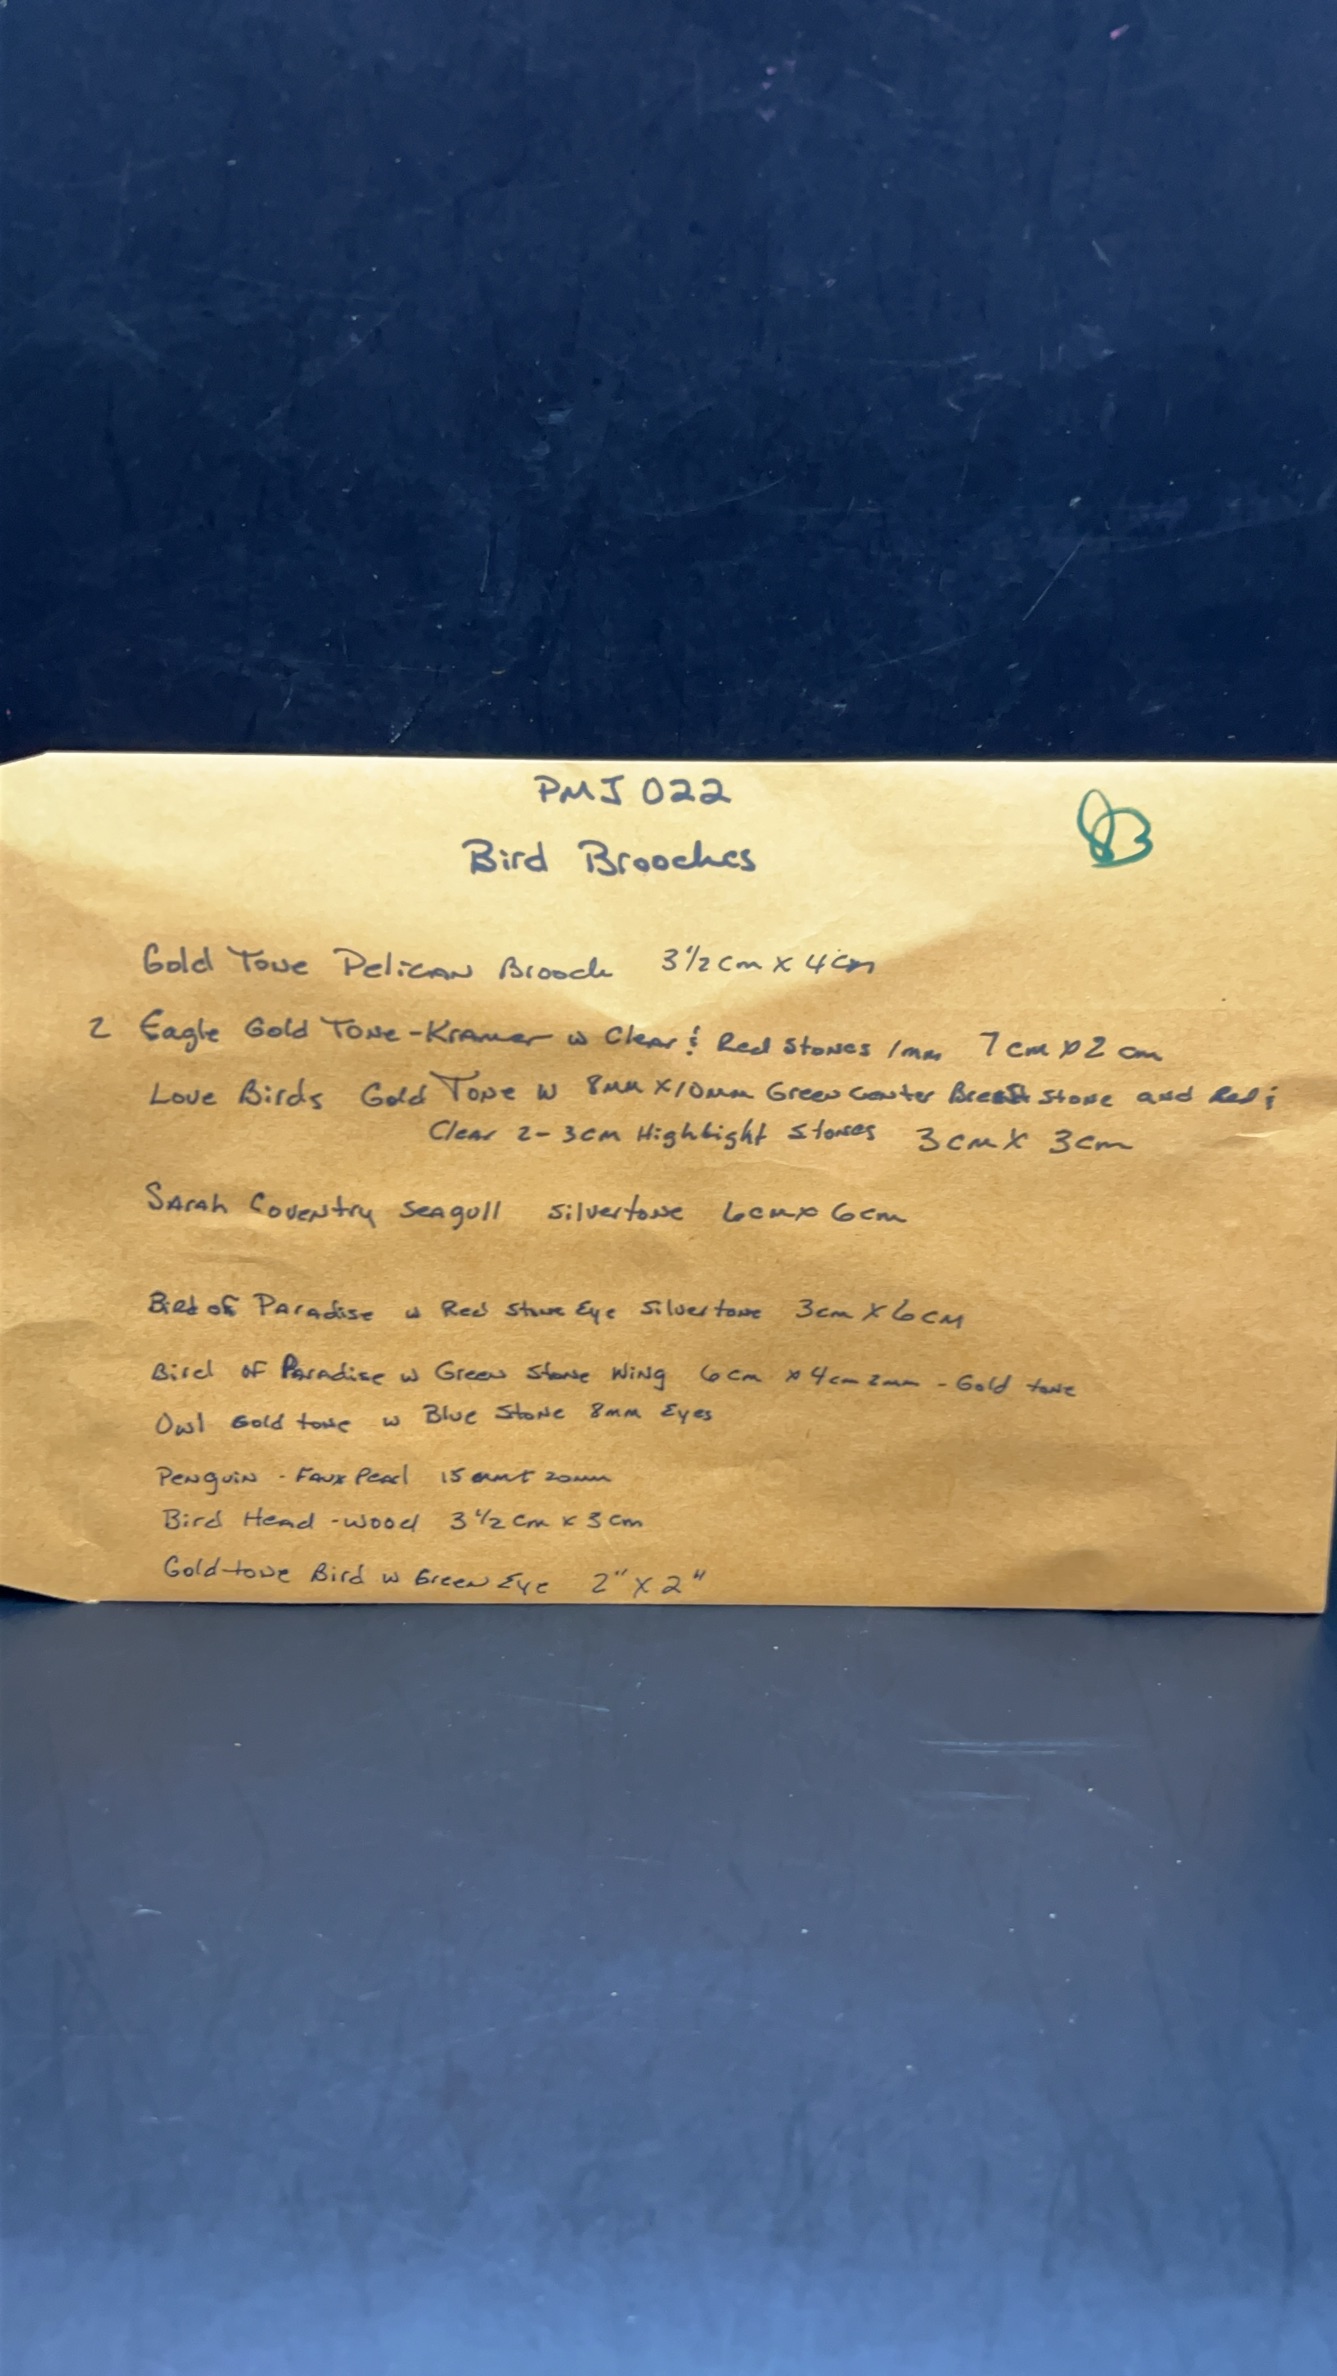 PMJ 022
Bird Brooches
Gold Tone Pelican Brooch 3 1/2 cm x 4 cm
2 Eagle Gold Tone - Kramer w Clear & Red Stones 1mm 7 cm x 2 cm
Love Birds Gold Tone w 8mm x 10mm Green Center Breast Stone and Red &
Clear 2-3cm Highlight Stones 3cm x 3cm
Sarah Coventry Seagull Silvertone 6cm x 6cm
Bird of Paradise w Red Stone Eye Silvertone 3cm x 6cm
Bird of Paradise w Green Stone Wing 6cm x 4cm 2mm - Gold tone
Owl Gold tone w Blue Stone 8mm Eyes
Penguin - Faux Pearl 15 20mm
Bird Head - wood 3 1/2 cm x 3 cm
Gold-tone Bird w Green Eye 2" x 2"